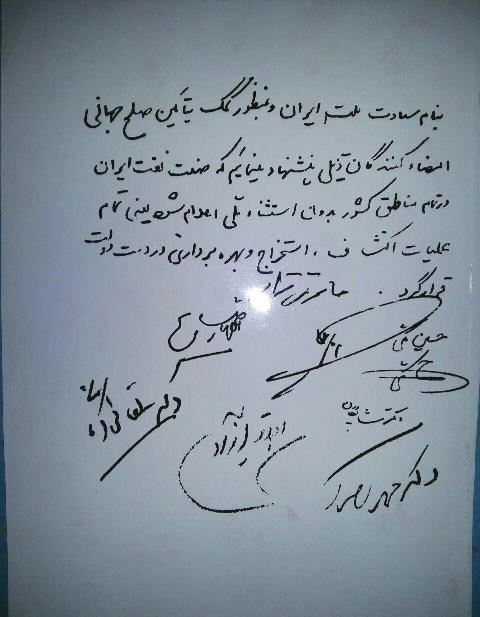 بنام سعادت ملت ایران و بمنظور کمک بتأمین صلح جهانی
امضاء کنندگان ذیل پیشنهاد مینمائیم که صنعت نفت ایران
در تمام مناطق کشور بدون استثناء ملی اعلام شود یعنی تمام
عملیات اکتشاف، استخراج و بهره برداری در دست دولت
قرار گیرد. حائری زاده
اللهیار صالح
حسین مکی
دکتر بقائی
دکتر شایگان
آزاد
دکتر محمد مصدق